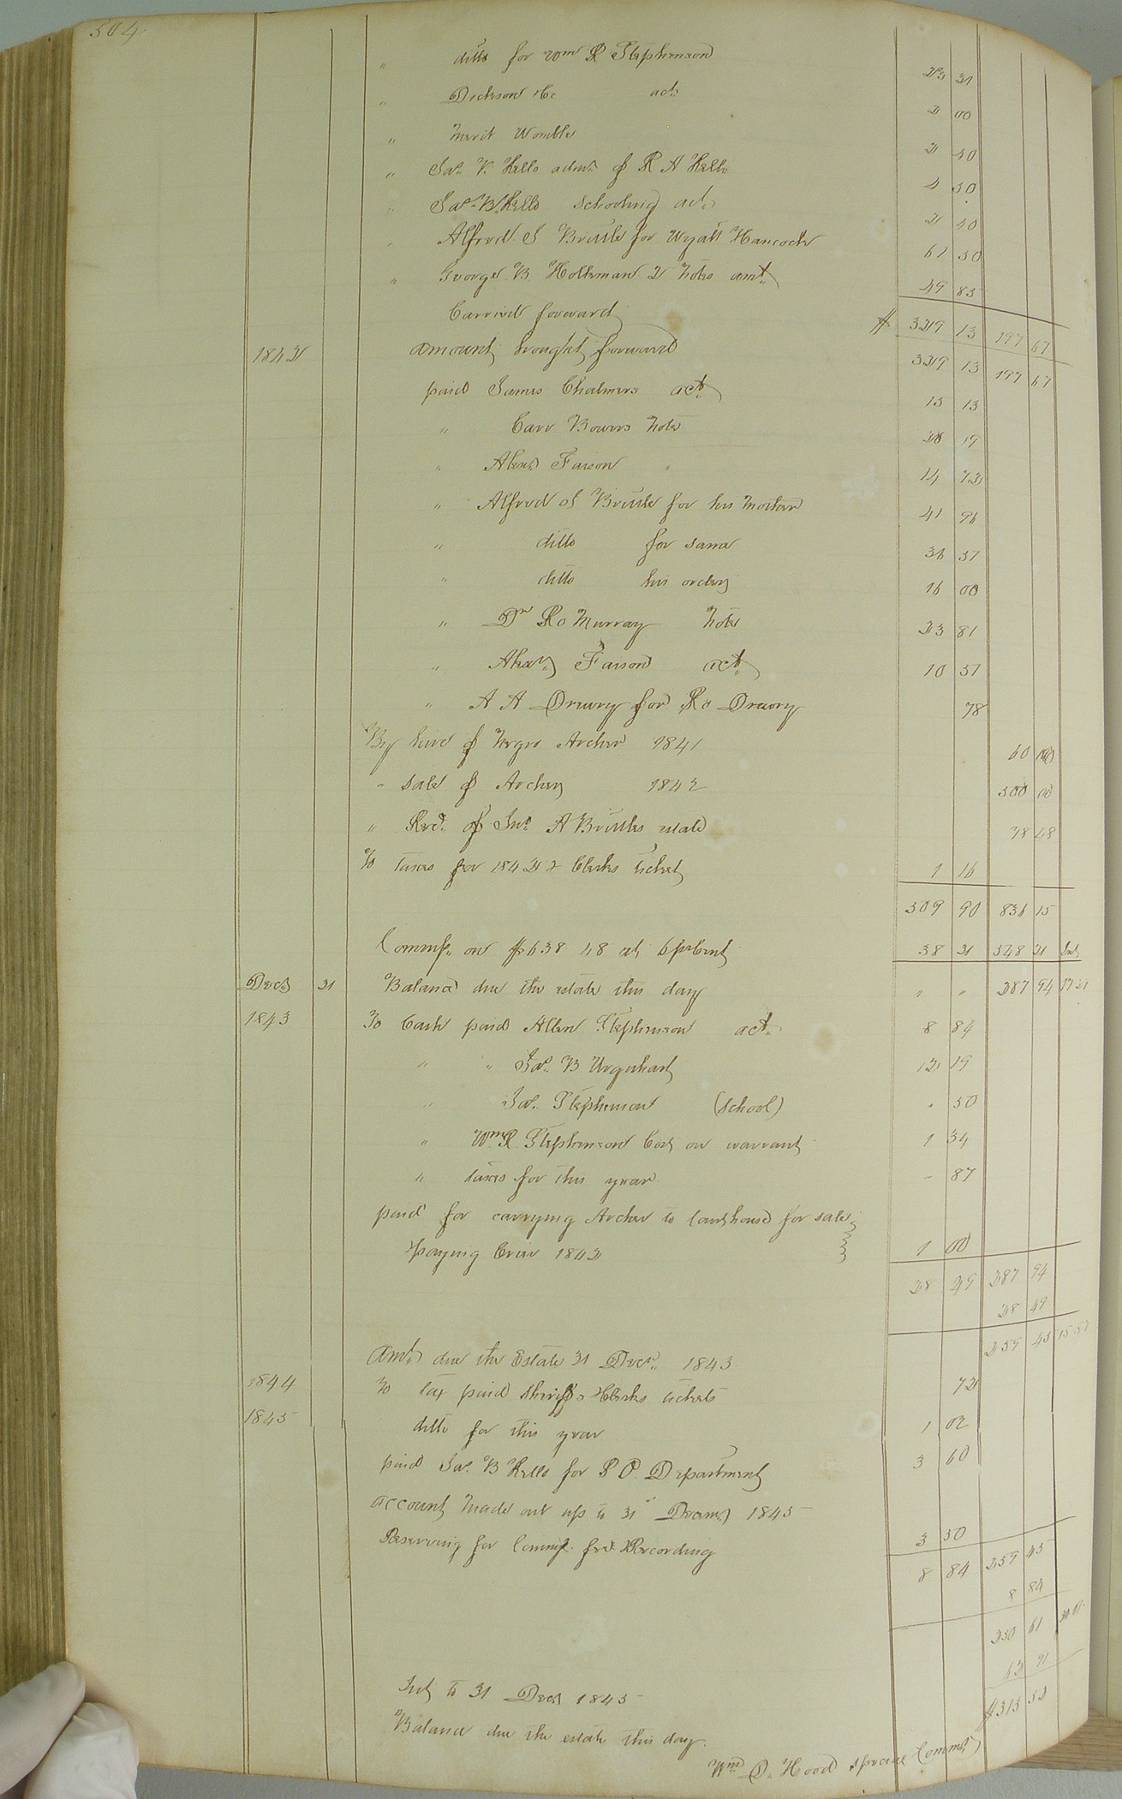 504
" ditto for Wm R Stephenson 23 21
" Dickson &Co act 2 00
" Merit Womble 2 50
" Jas. V. Kello admr of R H Kello 4 50
" Jas. B. Kello schooling act. 2 40
" Alfred S Brittle for Wyatt Hancock 61 50
" George B. Holleman 2 Notes amt. 49 85
Carried forward $ 329 13 197 67
1842 amount brought forward 329 13 197 67
paid James Chalmers act 13 13
" Carr Bowers Note 28 19
" Alexr Faison " 14 72
" Alfred S Brittle for his Mother 41 96
" ditto for same 36 37
" ditto his order 16 00
" Dr Ro Murray Note 23 81
" Alexr Faison act. 10 51
" A A Drewry for Ro Drewry 78
By hire of Negro Archer 1841 60 00
" sale of Archer 1842 500 00
" Recd. of Jno. A Brittles estate 78 48
To taxes for 1842 & Clerks ticket 1 16
509 90 836 15
Commss. on $638 48 at 6 prCent 38 31 548 21 Int
Decr 31 Balance due the estate this day " " 287 94 17 27
1843 To Cash paid Allen Stephenson act. 8 84
" " Jas. B Urquhart 12 19
" Jas. Stephenson (School) . 50
" Wm R Stephenson Cost on warrant 1 34
" taxes for this year - 87
paid for carrying Archer to Courthouse for sale
& paying Crier 1842 1 00
28 49 287 94
28 49
Amt. due the Estate 31 Decr. 1843 259 45
1844 To tax paid Sheriff & Clerks tickets 72
1845 ditto for this year 1 02
paid Jas. B Kello for P O Department 3 60
account made out up to 31st Decem. 1845
Reserving for Commss. for Recording 3 50
8 84 259 45
8 84
250 61
62 91
Int to 31 Decr 1845
Balance due the estate this day. $313 52
Wm. D. Hood special Commr.